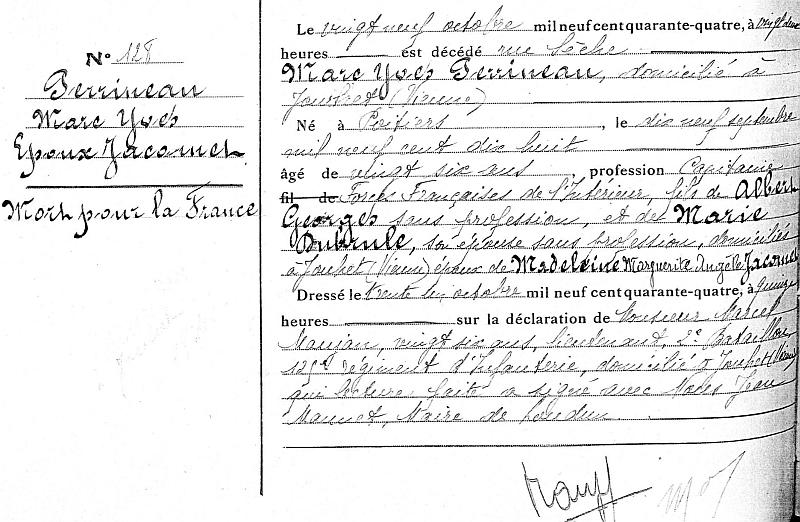 N° 128
Perrineau
Marc Yves
Epoux Jacomet
Mort pour la France
Le vingt neuf octobre mil neuf cent quarante-quatre, à vingt deux
heures est décédé rue Sèche
Marc Yves Perrineau, domicilié à
(Vienne)
Né à Poitiers, le dix neuf septembre
mil neuf cent dix huit
âgé de vingt six ans profession Capitaine
fil de Forces Françaises de l'Intérieur, fils de Albert
Georges sans profession, et de Marie
Dubrule, son épouse sans profession, domiciliés
à Jouhet (Vienne) époux de Madeleine Marguerite Angèle Jacomet
Dressé le trente un octobre mil neuf cent quarante-quatre, à quinze
heures sur la déclaration de Monsieur Marcel
Maujan, vingt six ans, lieutenant, 2e Bataillon
125e régiment d'Infanterie, domicilié à Jouhet (Vienne)
qui lecture faite a signé avec Nous Jean
Maire de Loudun